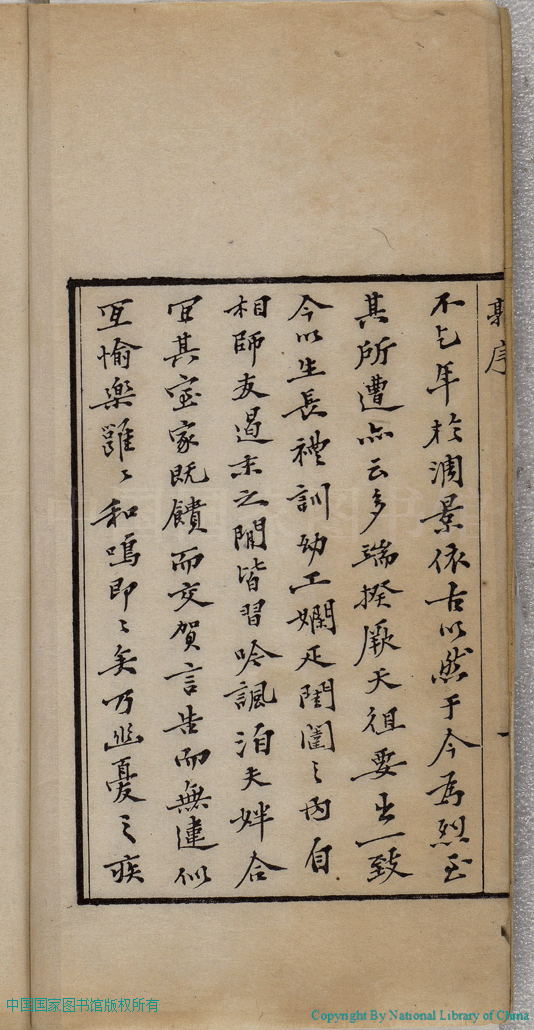 序
不乞年於凋景依古以然于今為烈至
其所遭亦云多端揆厥夭徂要出一致
今以生長禮訓幼工嫻疋閨闥之內自
相師友過末之閒皆習吟諷洎夫姅合
宜其室家既饋而交賀言告而無違似
宜愉樂雝〻和鳴即〻矣乃幽憂之疾
中国国家图书馆版权所有
Copyright By National Library of China